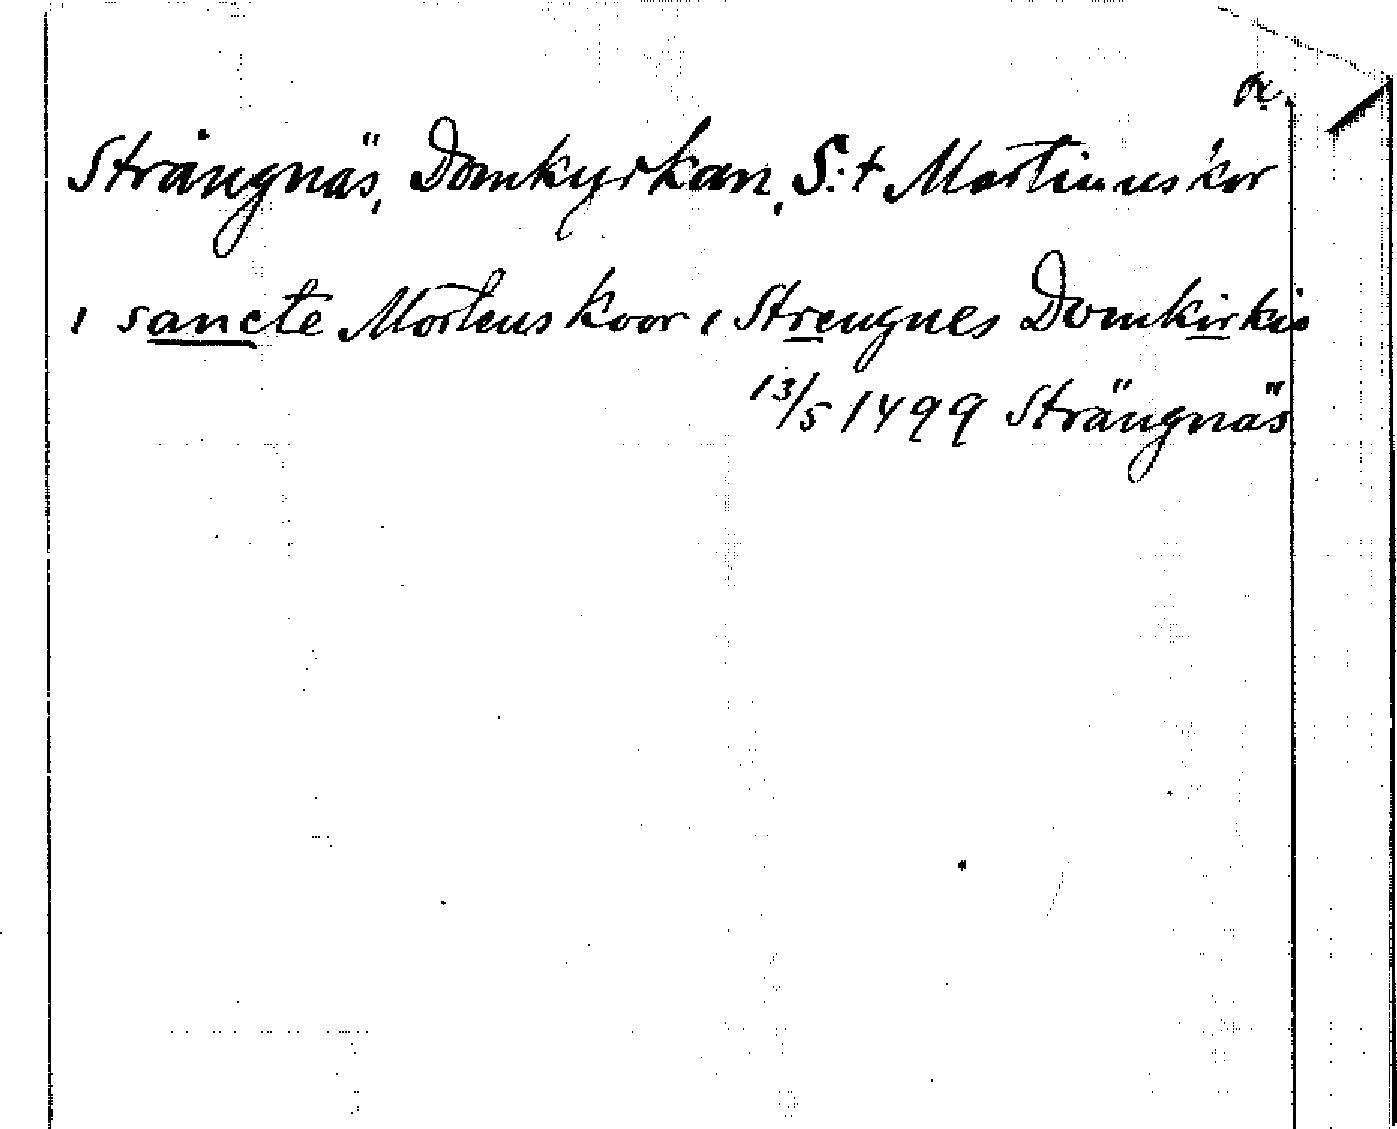 Strängnäs, Domkyrkan, S:t Martinus' kor
i sancte Mortens koor i Strengnes Domkirkio
13/5 1499 Strängnäs